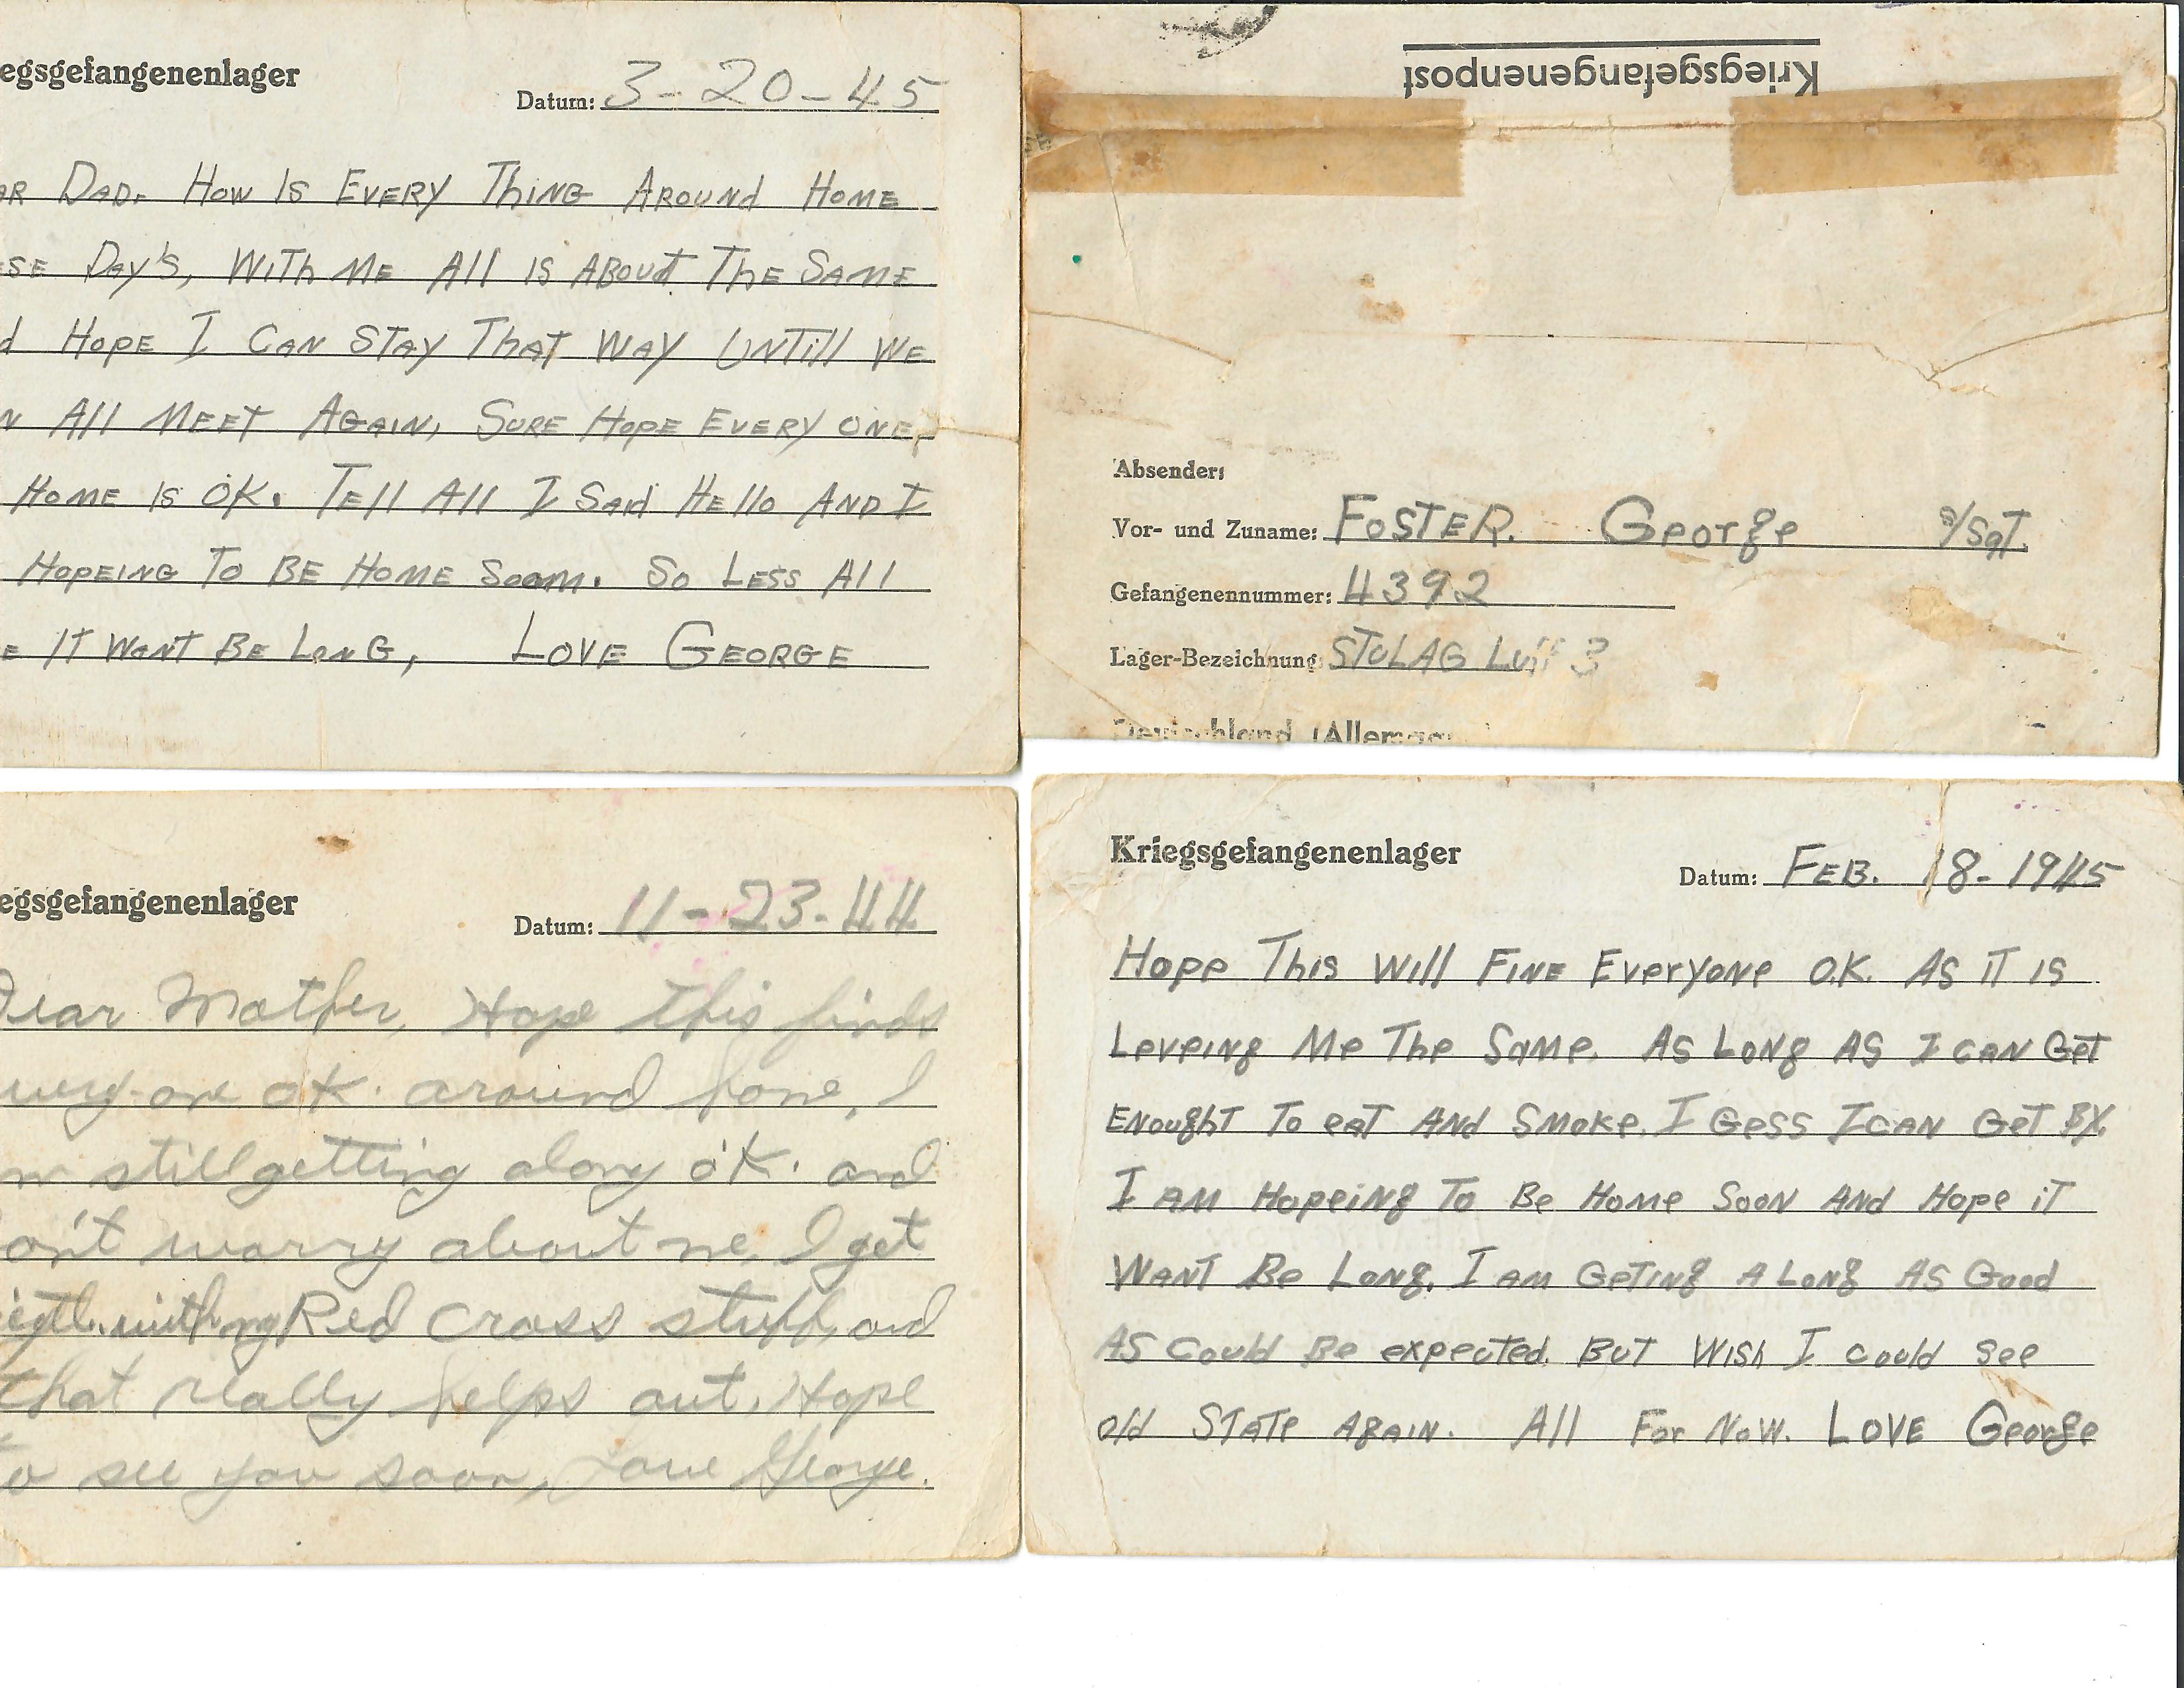 egsgefangenenlager
Datum: 3-20-45
AR DAD. HOW IS EVERY THING AROUND HOME
ESE DAY'S, WITH ME All IS ABOUT THE SAME
d HOPE I CAN STAY THAT WAY UNTill WE
N All MEET AGAIN, SURE HOPE EVERY ONE,
HOME IS OK. TEll All I SAid HEllo AND I
HOPEING TO BE HOME Soon. SO LESS All
E IT WANT BE LONG, LOVE GEORGE
Kriegsgefangenenpost
Absender:
Vor- und Zuname: FOSTER. George S/SgT.
Gefangenennummer: 4392
Lager-Bezeichnung: STULAG Luft 3
Deutschland (Allemagne
egsgefangenenlager
Datum: 11-23-44
Dear Mother, Hope this finds
very-one ok. around home, I
m still getting along ok. and
on't worry about me, I get
with my Red Cross stuff, and
that really helps out, Hope
to see you soon, Love George.
Kriegsgefangenenlager
Datum: FEB. 18-1945
Hope This Will FINE Everyone O.K. AS IT IS
Leveing Me The Same. AS LONg AS I CAN Get
ENought To eat AND SMoke. I Gess I CAN GeT BY.
I AM Hopeing To Be Home Soon AND Hope iT
WANT Be Long. I AM GeTiNg A LoNg AS Good
AS Could Be expected. BuT Wish I could see
old State AgAiN. All For NoW. LOVE George